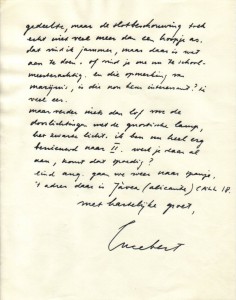 gedeelte, maar de slotbeschouwing toch
echt niet veel meer dan een hoopje as.
dat vind ik jammer, maar daar is niet
aan te doen. of vind je me nu te school-
meesterachtig. en die opmerking van
marijnis, is die nou hem interessant? te
veel eer.
maar verder niets dan lof voor de
doorlichtingen met de gnostische lamp,
het zwarte licht. ik ben nu heel erg
benieuwd naar II. werk je daar al
aan, komt dat spoedig?
eind aug. gaan we weer naar spanje.
't adres daar is Jávea (alicante) CALL 18.
met hartelijke groet,
Lucebert